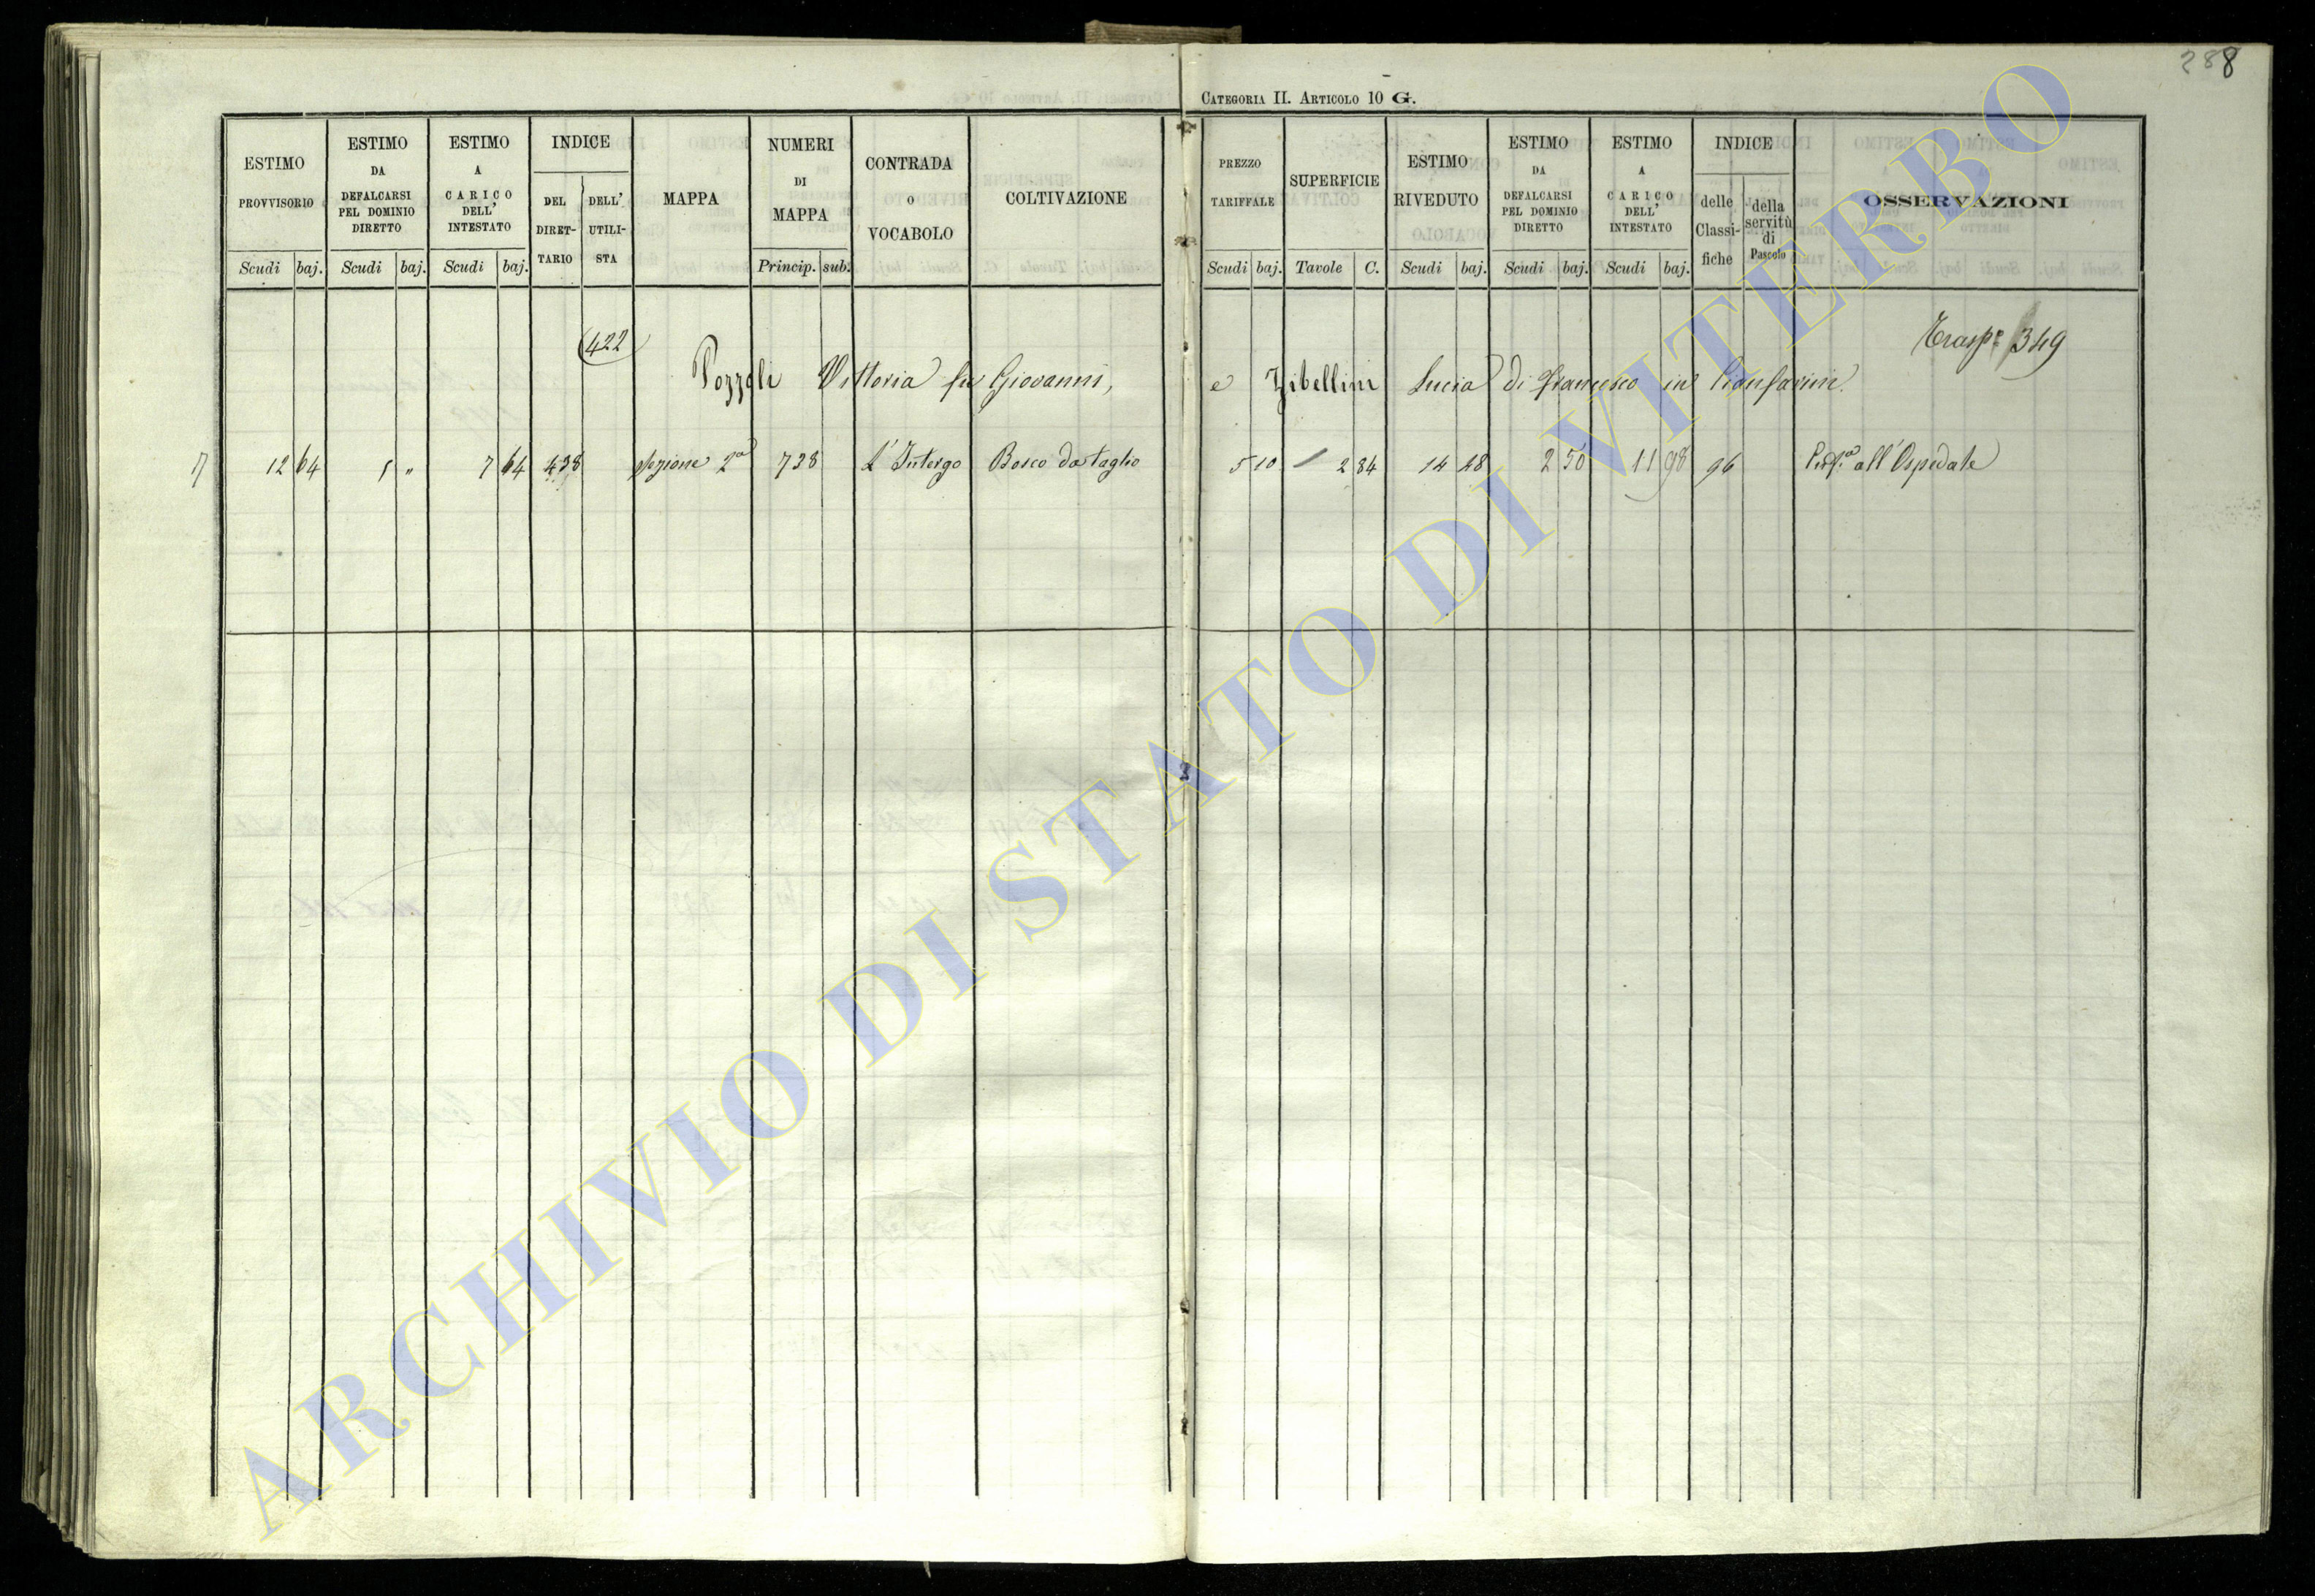 288
CATEGORIA II. ARTICOLO 10 G.
ESTIMO PROVVISORIO Scudi baj.
ESTIMO DA DEFALCARSI PEL DOMINIO DIRETTO Scudi baj.
ESTIMO A CARICO DELL' INTESTATO Scudi baj.
INDICE DEL DIRET-TARIO DELL' UTILI-STA
MAPPA
NUMERI DI MAPPA Princip. sub.
CONTRADA o VOCABOLO
COLTIVAZIONE
PREZZO TARIFFALE Scudi baj.
SUPERFICIE Tavole C.
ESTIMO RIVEDUTO Scudi baj.
ESTIMO DA DEFALCARSI PEL DOMINIO DIRETTO Scudi baj.
ESTIMO A CARICO DELL' INTESTATO Scudi baj.
INDICE delle Classi-fiche della servitù di Pascolo
OSSERVAZIONI
422
Trasp.e 349
Pozzoli Vittoria fu Giovanni, e Zibellini Lucia di Francesco in
12 64 5 " 7 64 438 Sezione 2a 738 L'Intergo Bosco da taglio 5 10 2 84 14 48 2 50 11 98 96 all'Ospedale
ARCHIVIO DI STATO DI VITERBO